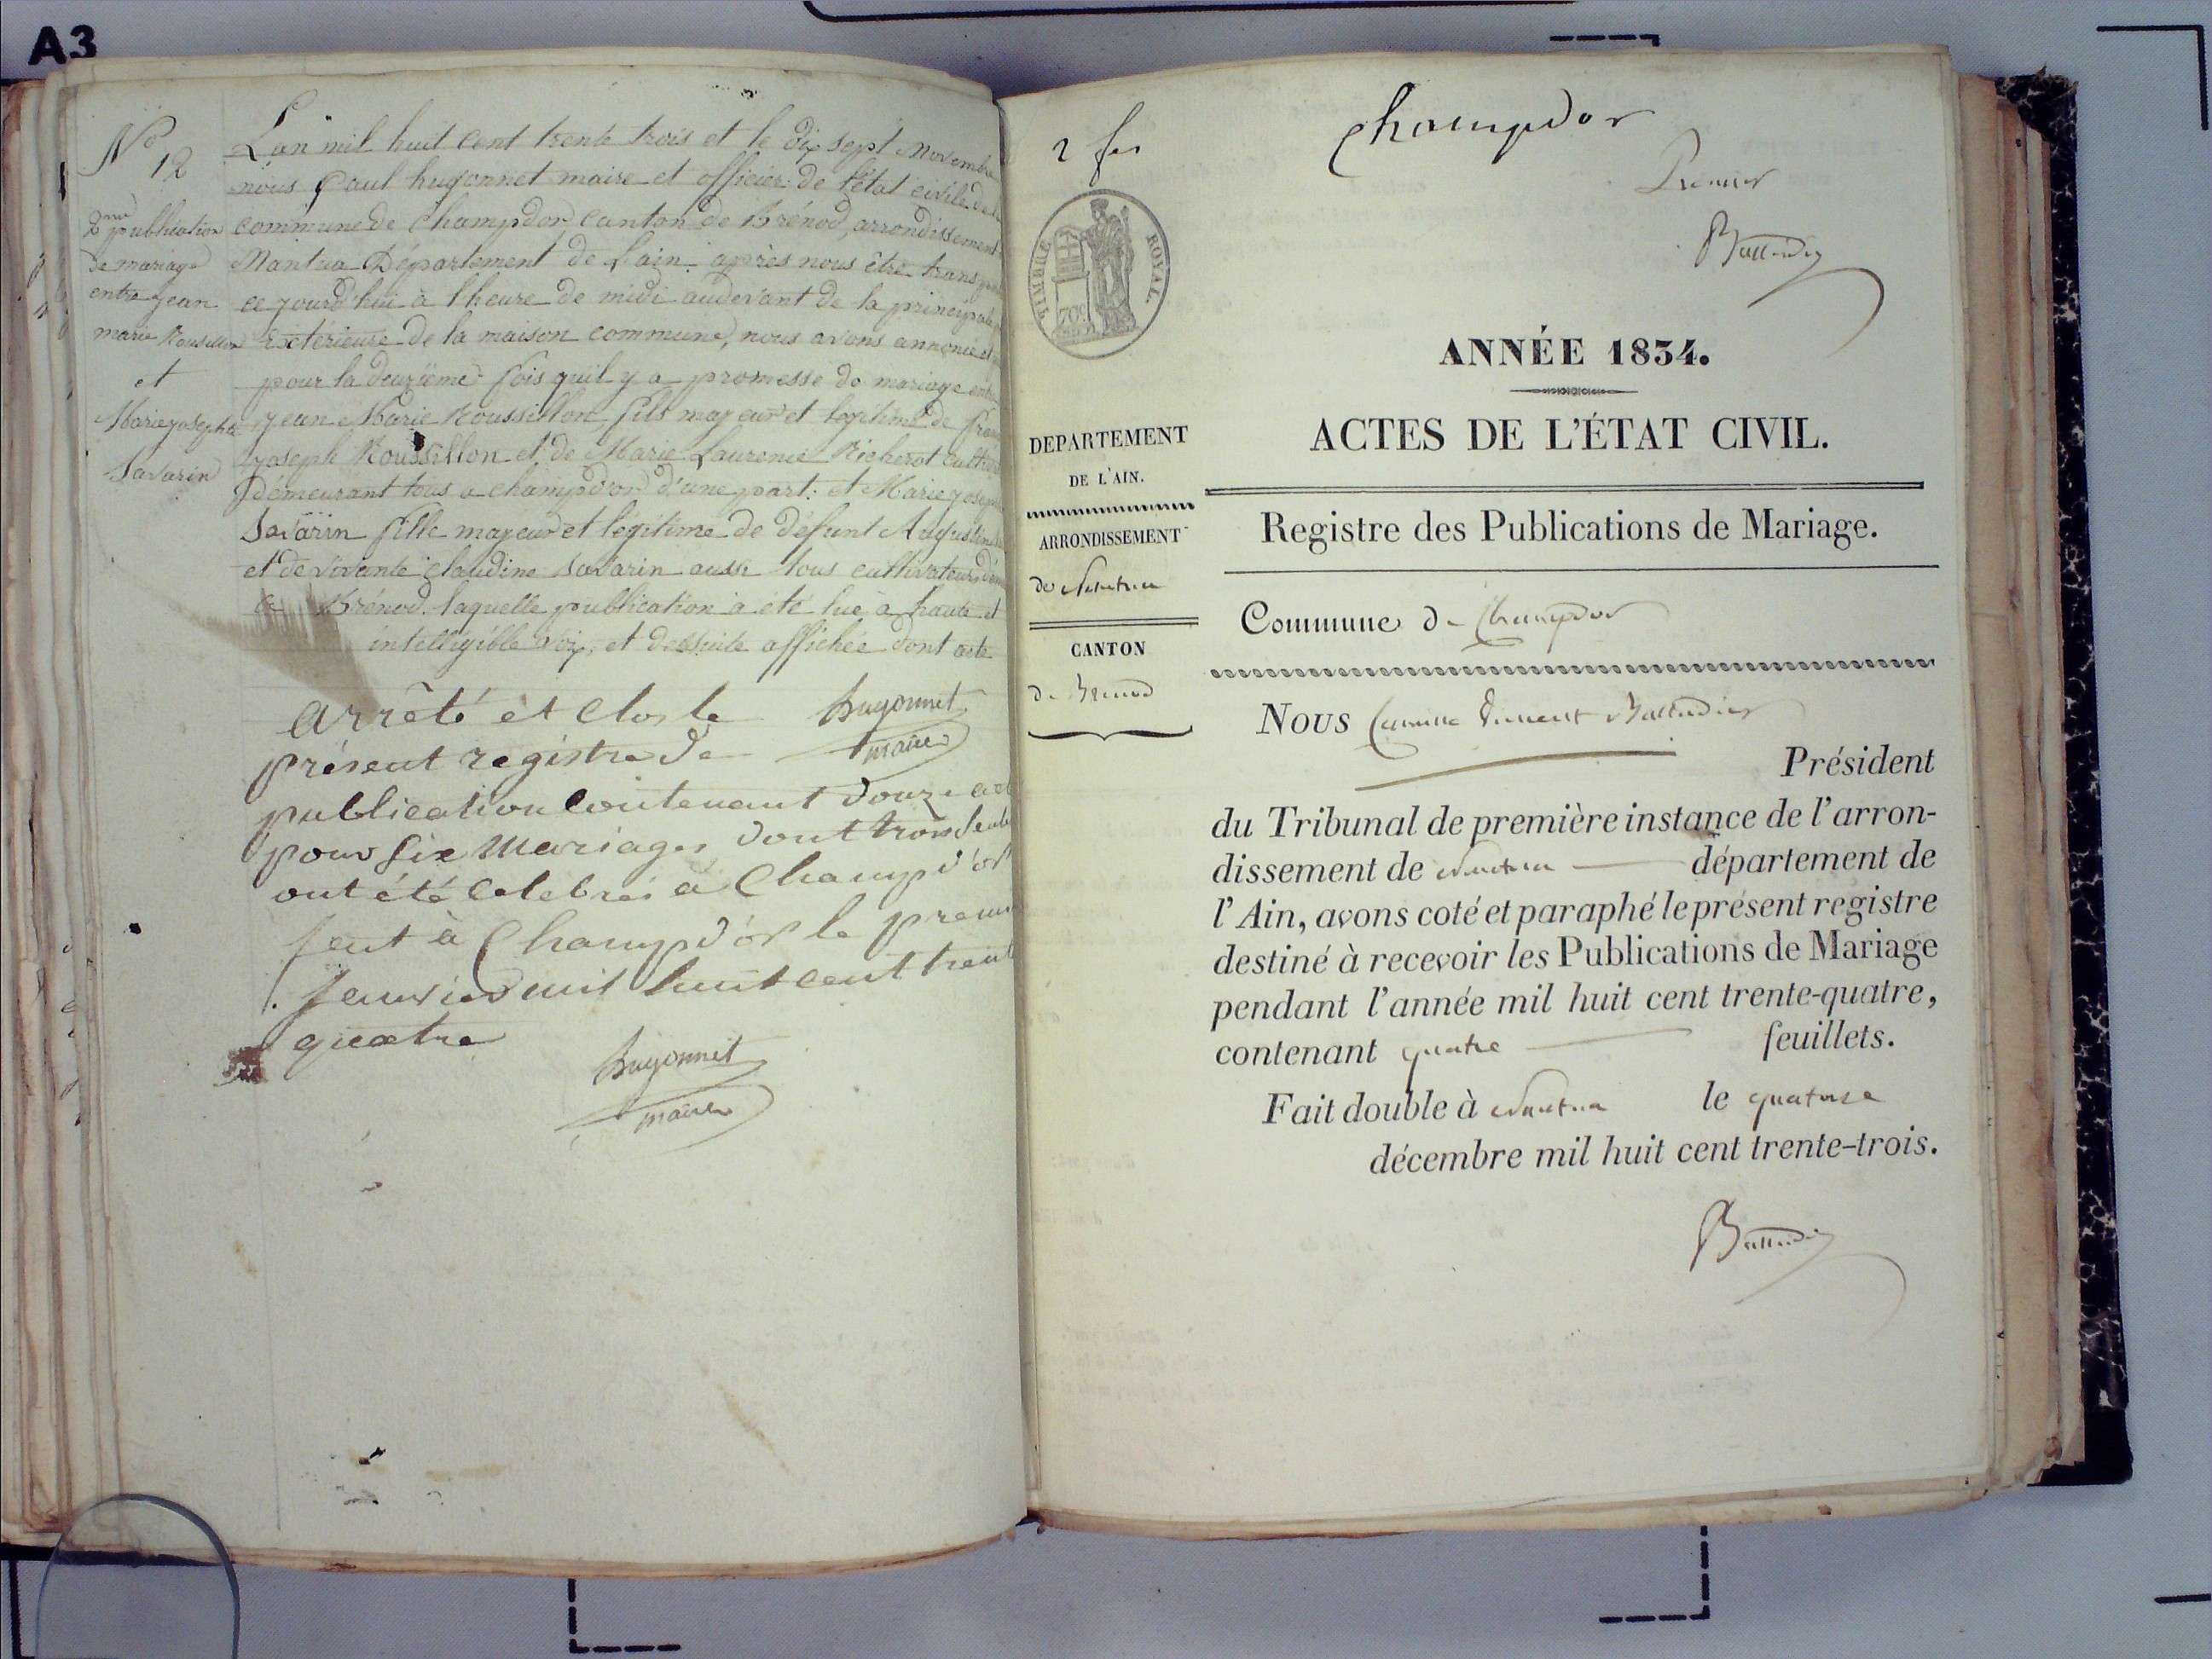 A3
N° 12
2me publication
de mariage
entre jean
marie Rousillon
et
Marie josephte
Savarin
L'an mil huit cent trente trois et le dix sept Novembre
nous Paul hugonnet maire et officier de l'état civile de la
commune de Champdor, canton de Brénod, arrondissement
Nantua Département de L'ain, après nous être trans
ce jourd'hui à l'heure de midi audevant de la principale
Extérieure de la maison commune, nous avons annoncé et
pour la deuxième fois qu'il y a promesse de mariage entre
jean Marie Roussillon fils majeur et légitime de
joseph Roussillon et de Marie Laurence Richerot
demeurant tous a champd'or d'une part: et Marie
Savarin fille majeur et légitime de défunt Augustin
et de vivante claudine Savarin aussi tous cultivateurs
Brénod. laquelle publication a été lue à haute et
intelligible voix, et desuite affichée dont acte
hugonnet
maire
arrêté et clos le
présent registre de
publication Contenant douze
pour six mariages dont trois
ont été célébrés à Champd'or
fait à Champd'or le
janvier mil huit cent
quatre
hugonnet
maire
2 fes
Champdor
Premier
TIMBRE ROYAL.
ANNÉE 1834.
ACTES DE L'ÉTAT CIVIL.
DEPARTEMENT
DE L'AIN.
Registre des Publications de Mariage.
ARRONDISSEMENT
de Nantua
Commune de Champdor
CANTON
de Brenod
Nous Camille
Président
du Tribunal de première instance de l'arron-
dissement de Nantua département de
l'Ain, avons coté et paraphé le présent registre
destiné à recevoir les Publications de Mariage
pendant l'année mil huit cent trente-quatre,
contenant quatre feuillets.
Fait double à Nantua le quatorze
décembre mil huit cent trente-trois.